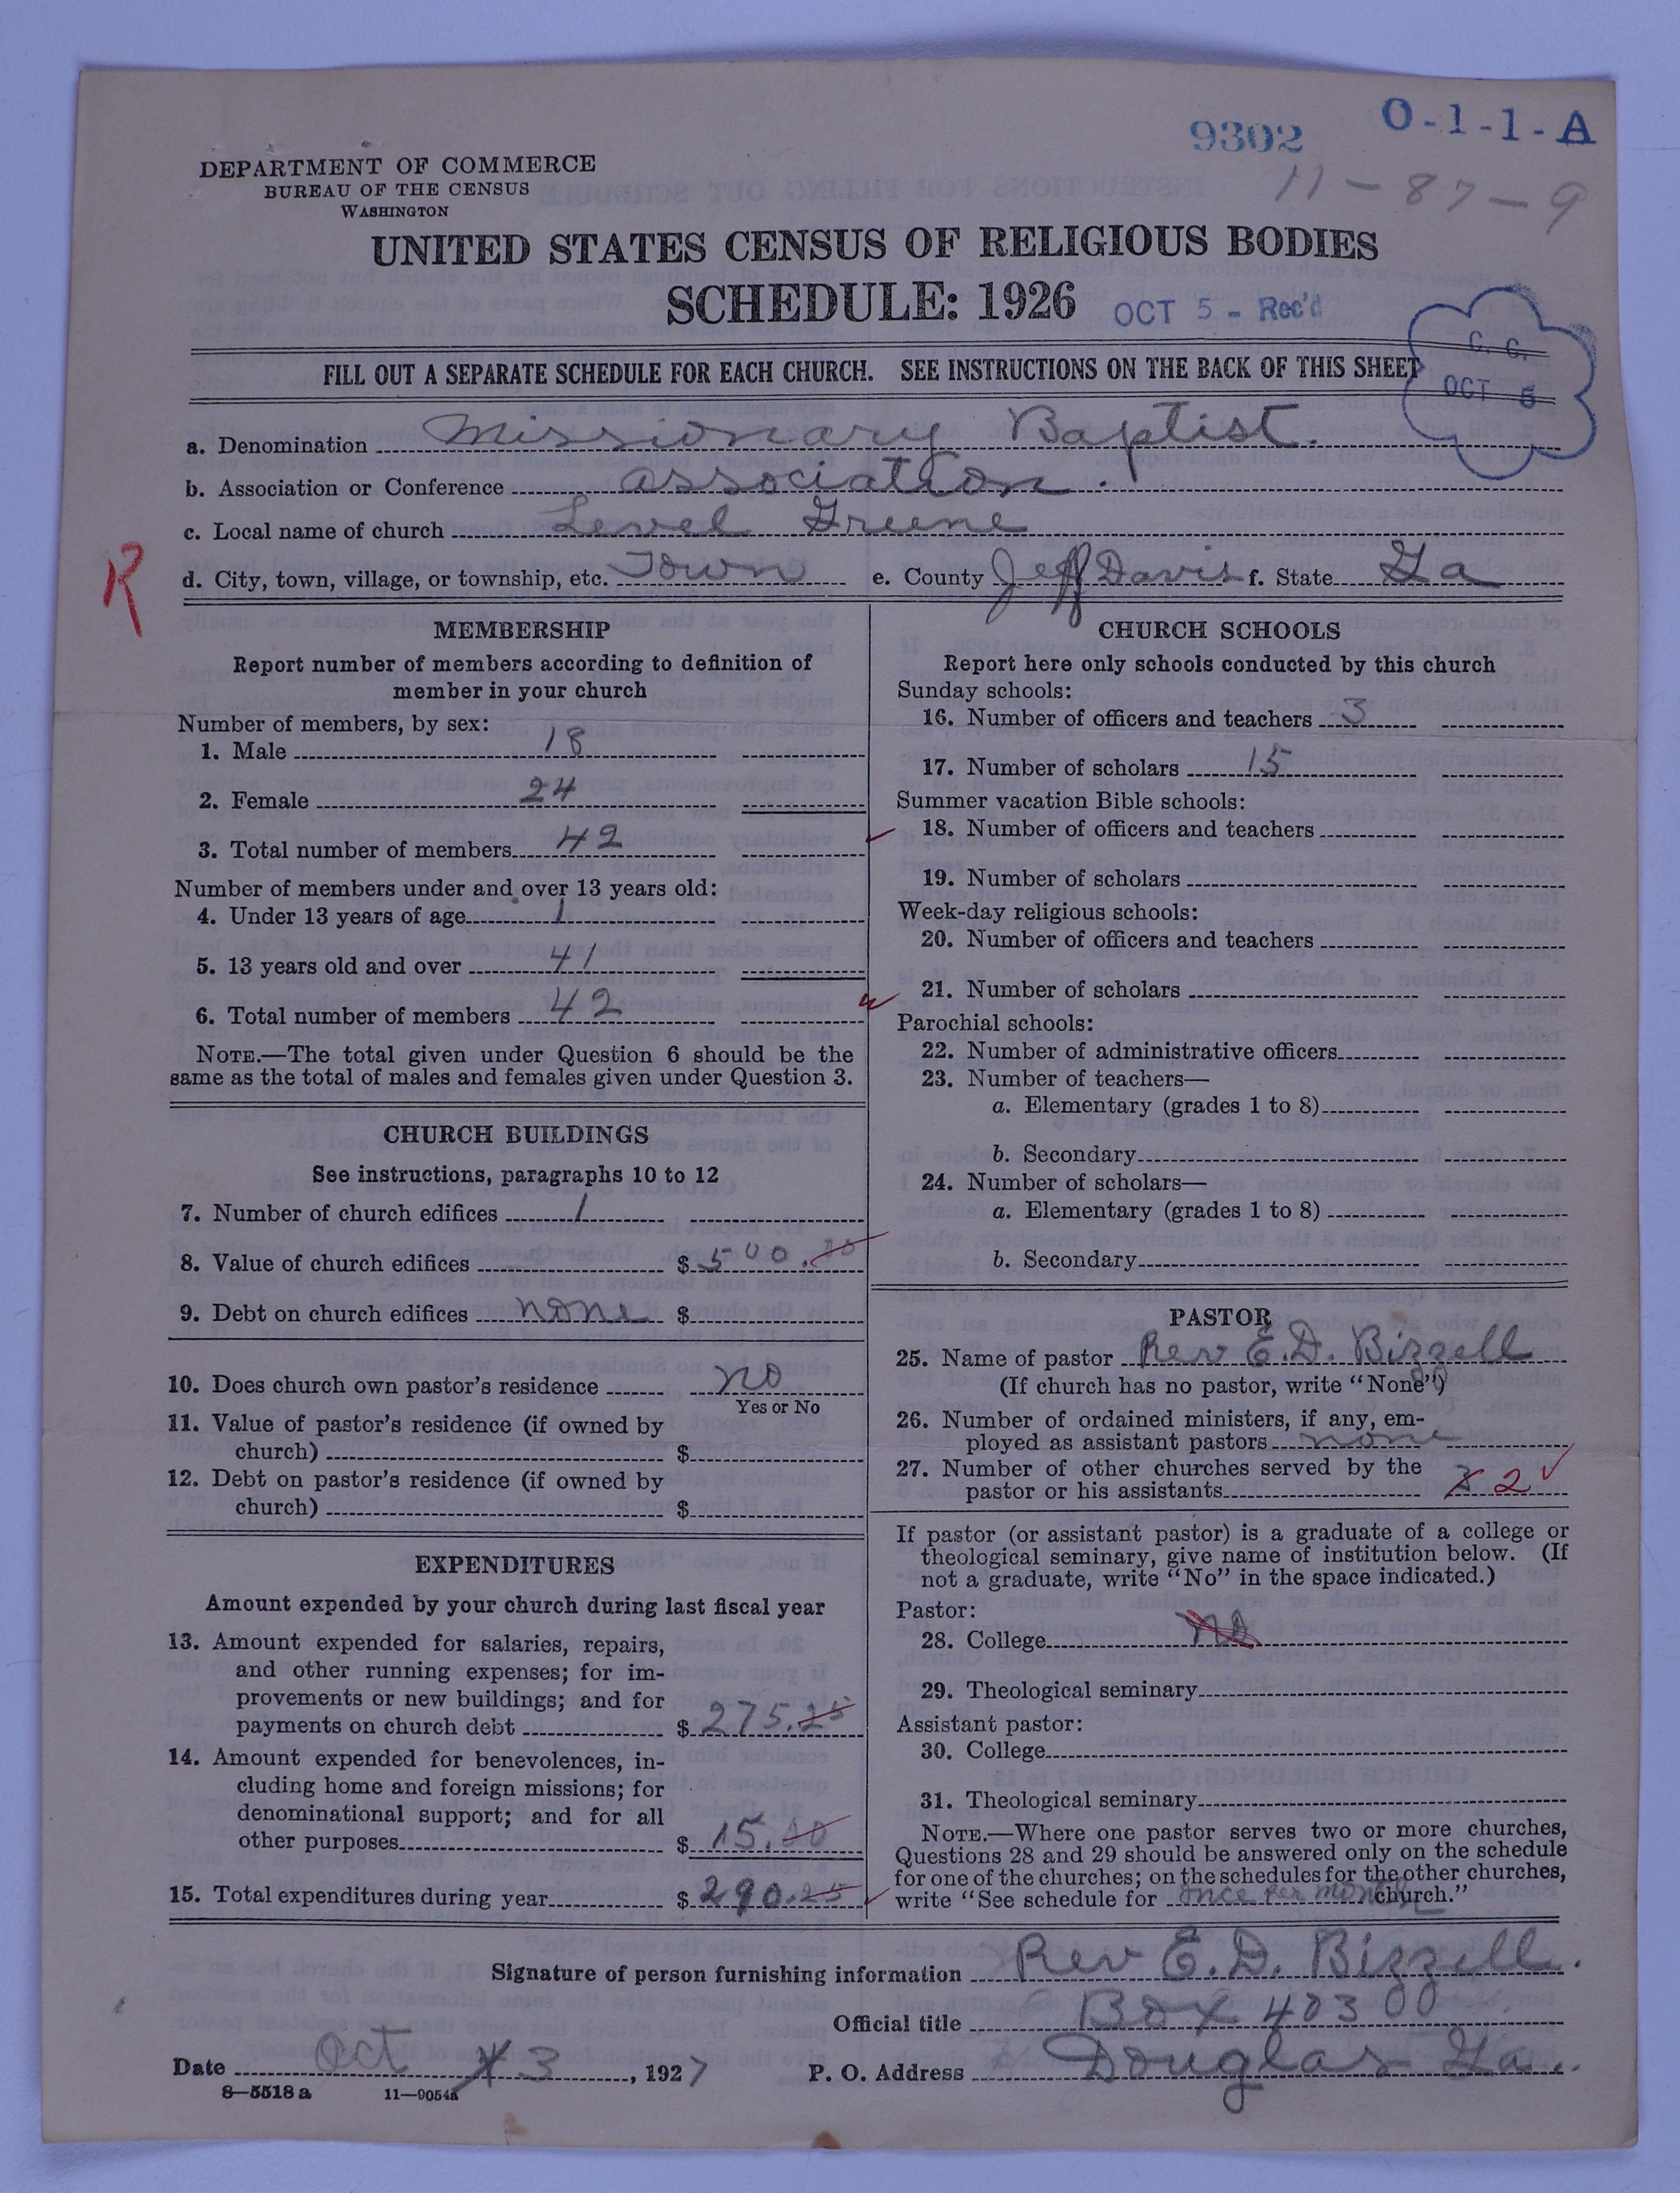 9302 O-1-1-A
11-87-9
DEPARTMENT OF COMMERCE
BUREAU OF THE CENSUS
WASHINGTON
UNITED STATES CENSUS OF RELIGIOUS BODIES
SCHEDULE: 1926 OCT 5 - Rec'd
C. C.
OCT 5
FILL OUT A SEPARATE SCHEDULE FOR EACH CHURCH. SEE INSTRUCTIONS ON THE BACK OF THIS SHEET
a. Denomination Missionary Baptist.
b. Association or Conference association.
c. Local name of church Level Greene
R
d. City, town, village, or township, etc. Town e. County Jeff Davis f. State Ga
MEMBERSHIP
Report number of members according to definition of
member in your church
Number of members, by sex:
1. Male 18
2. Female 24
3. Total number of members 42
Number of members under and over 13 years old:
4. Under 13 years of age 1
5. 13 years old and over 41
6. Total number of members 42
NOTE.—The total given under Question 6 should be the
same as the total of males and females given under Question 3.
CHURCH BUILDINGS
See instructions, paragraphs 10 to 12
7. Number of church edifices 1
8. Value of church edifices $ 500.00
9. Debt on church edifices none $
10. Does church own pastor's residence no
Yes or No
11. Value of pastor's residence (if owned by
church) $
12. Debt on pastor's residence (if owned by
church) $
EXPENDITURES
Amount expended by your church during last fiscal year
13. Amount expended for salaries, repairs,
and other running expenses; for im-
provements or new buildings; and for
payments on church debt $ 275.25
14. Amount expended for benevolences, in-
cluding home and foreign missions; for
denominational support; and for all
other purposes $ 15.00
15. Total expenditures during year $ 290.25
CHURCH SCHOOLS
Report here only schools conducted by this church
Sunday schools:
16. Number of officers and teachers 3
17. Number of scholars 15
Summer vacation Bible schools:
18. Number of officers and teachers
19. Number of scholars
Week-day religious schools:
20. Number of officers and teachers
21. Number of scholars
Parochial schools:
22. Number of administrative officers
23. Number of teachers—
a. Elementary (grades 1 to 8)
b. Secondary
24. Number of scholars—
a. Elementary (grades 1 to 8)
b. Secondary
PASTOR
25. Name of pastor Rev E.D. Bizzell
(If church has no pastor, write "None")
26. Number of ordained ministers, if any, em-
ployed as assistant pastors none
27. Number of other churches served by the
pastor or his assistants 2
If pastor (or assistant pastor) is a graduate of a college or
theological seminary, give name of institution below. (If
not a graduate, write "No" in the space indicated.)
Pastor:
28. College no
29. Theological seminary
Assistant pastor:
30. College
31. Theological seminary
NOTE.—Where one pastor serves two or more churches,
Questions 28 and 29 should be answered only on the schedule
for one of the churches; on the schedules for the other churches,
write "See schedule for once per month church."
Signature of person furnishing information Rev E.D. Bizzell.
Official title Box 403
Date Oct 3, 1927 P. O. Address Douglas Ga.
8—5518 a 11—9054a